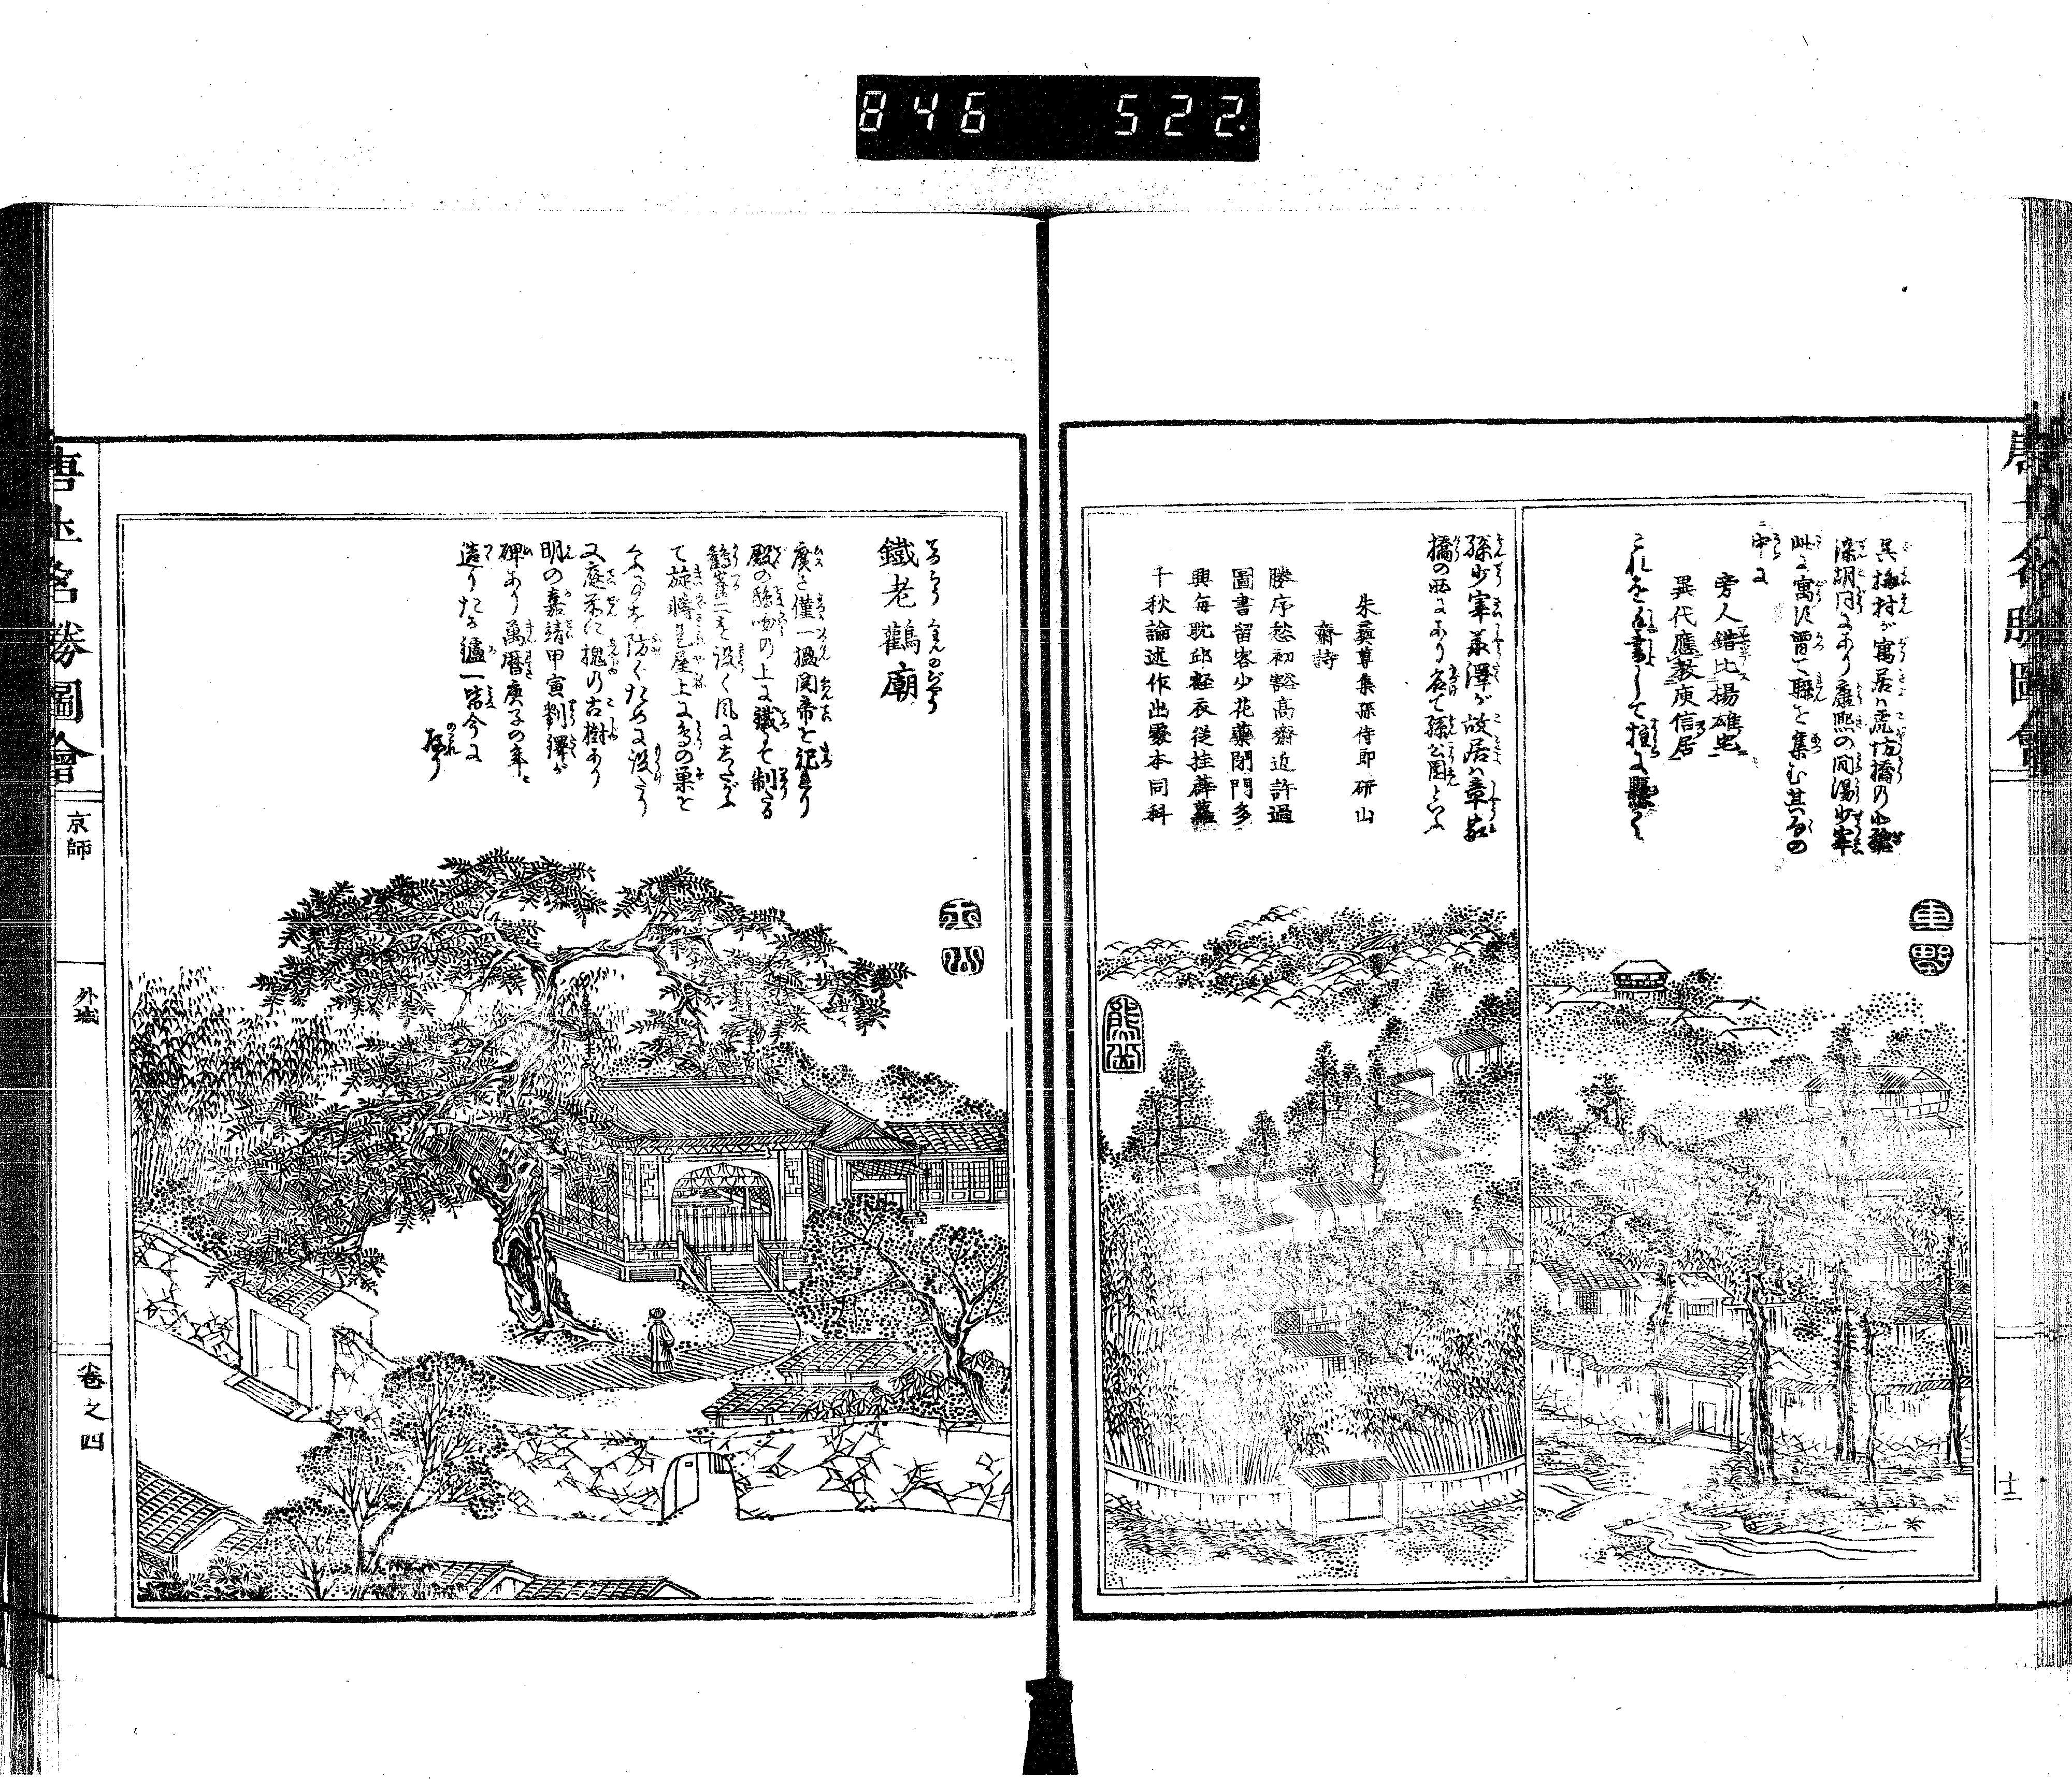 846 522
唐土名勝圖會
十二
呉梅村が寓居ハ虎坊橋の
梁胡同にあり康熙の間湯少宰
此に寓す曽て聯を集む其句の
中に
旁人錯比揚雄宅
異代應教庾信居
これを書して柱に懸く
孫少宰承澤が故居ハ章家
橋の西にあり名て孫公園といふ
朱彝尊集孫侍郎研山
齋詩
勝序愁初豁高齋近許過
圖書留客少花藥閉門多
興每耽邱壑衣從挂薜蘿
千秋論述作出處本同科
鐵老鸛廟
廣さ僅一楹関帝を祀れり
殿の鴟吻の上に鐵にて制する
鸛雀二を設く風にしたがふ
て旋轉し屋上に鳥の巣を
くふ事を防ぐために設たり
又庭前に槐の古樹あり
明の嘉靖甲寅劉繹が
碑あり萬暦庚子の年に
造りたる鑪一皆今に
存り
唐土名勝圖會
京師
外城
卷之四